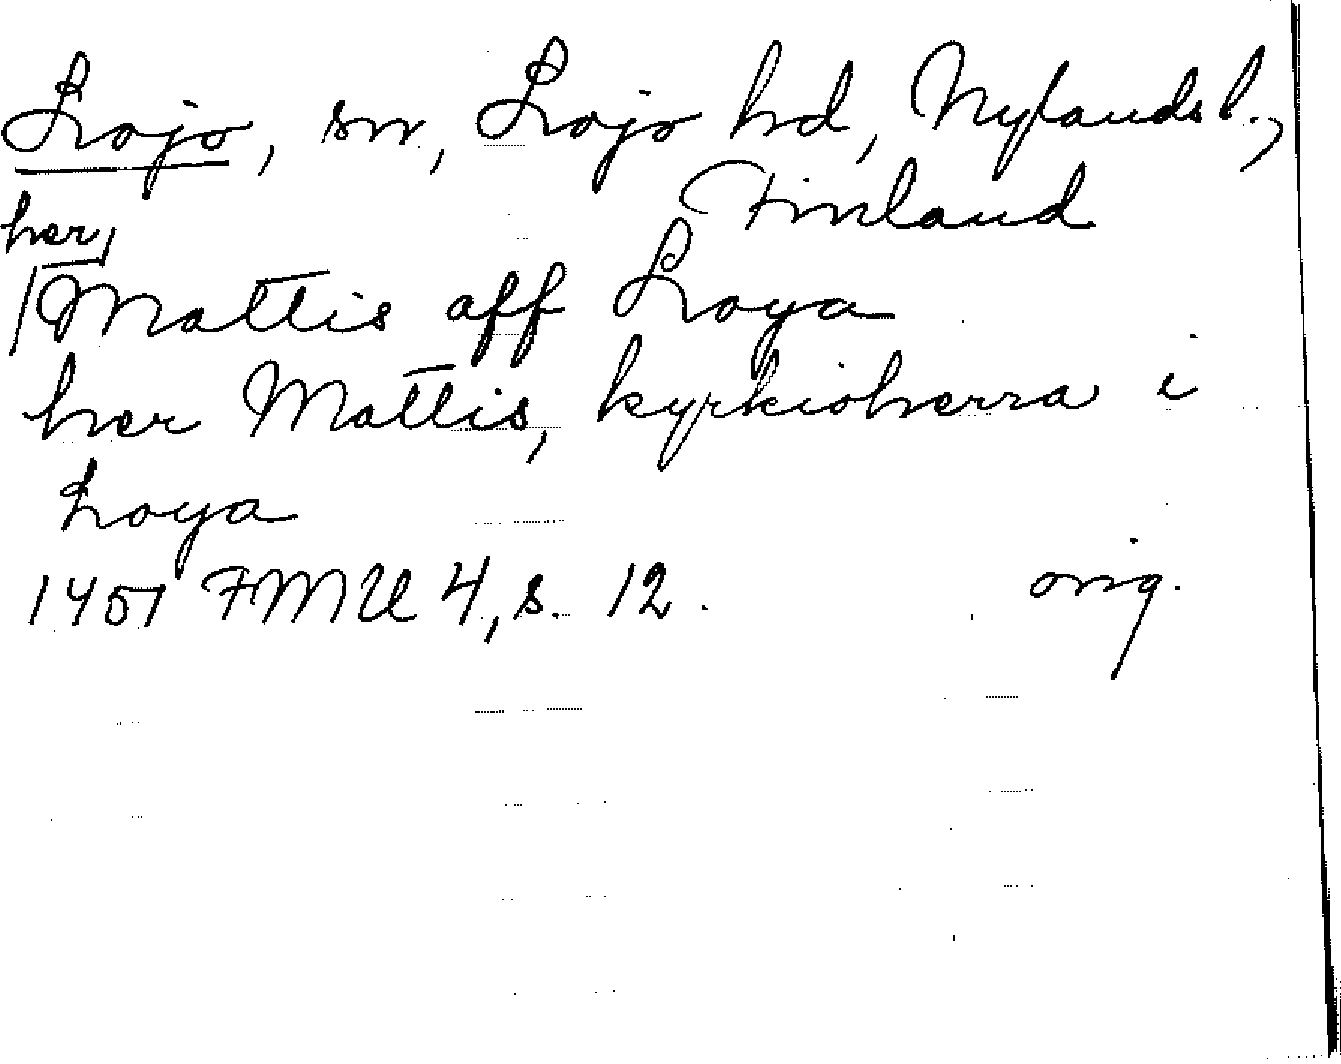 Lojo, sn, Lojo hd, Nylands l.,
Finland
her
Mattis aff Loya
her Mattis, kyrkioherra i
Loya
1451 FMU 4, s. 12. orig.